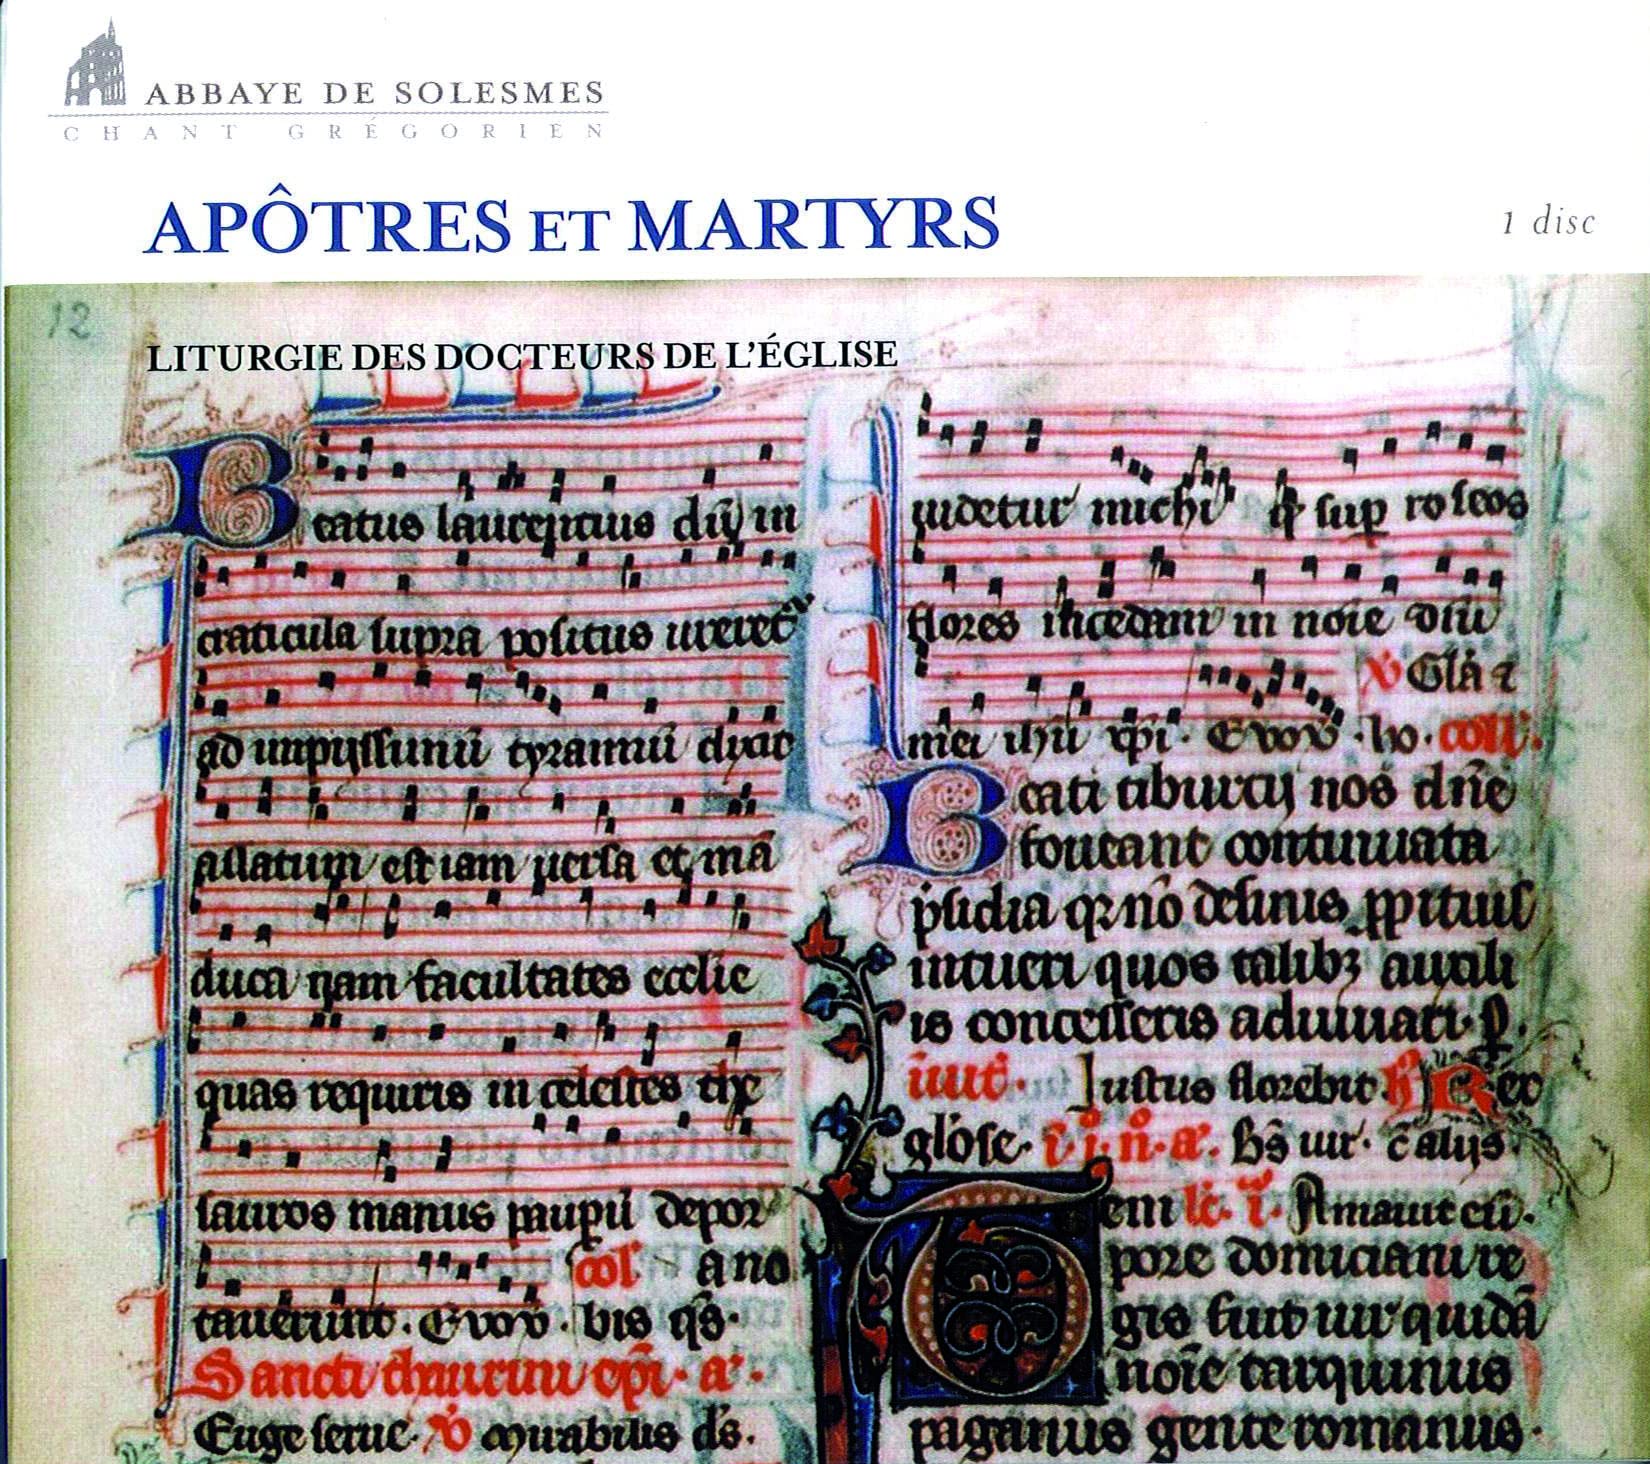 ABBAYE DE SOLESMES
CHANT GRÉGORIEN
APÔTRES ET MARTYRS
1 disc
12
LITURGIE DES DOCTEURS DE L'ÉGLISE
Beatus laurentius dū in
craticula supra positus ureret᷑
ad impijssimū tyrannū dixit
assatum est iam versa et mā
duca nam facultates ecclīe
quas requiris in celestes the
sauros manus paupū depor
col ano
taverunt. Evovv. bis qs.
Sancti epi. a.
Euge serve. v mirabilis ds.
videtur michi q sup roseos
flores incedam in noīe dnī
v Glā
mei ihū xpi. Evovv. ho. coll.
Beati tiburcij nos dn̄e
foveant continuata
psidia q nō desinis ppitius
intueri quos talibȝ auxili
is concesseris adiuvari. p.
invit. Justus florebit. Rex
gl'ose. celīs.
lc. i.
pore domiciani re
gis fuit vir quidā
noīe tarquinus
paganus gente romanus.